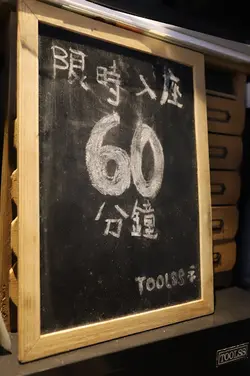 限時入座
60
分鐘
TOOLSS示
TOOLSS